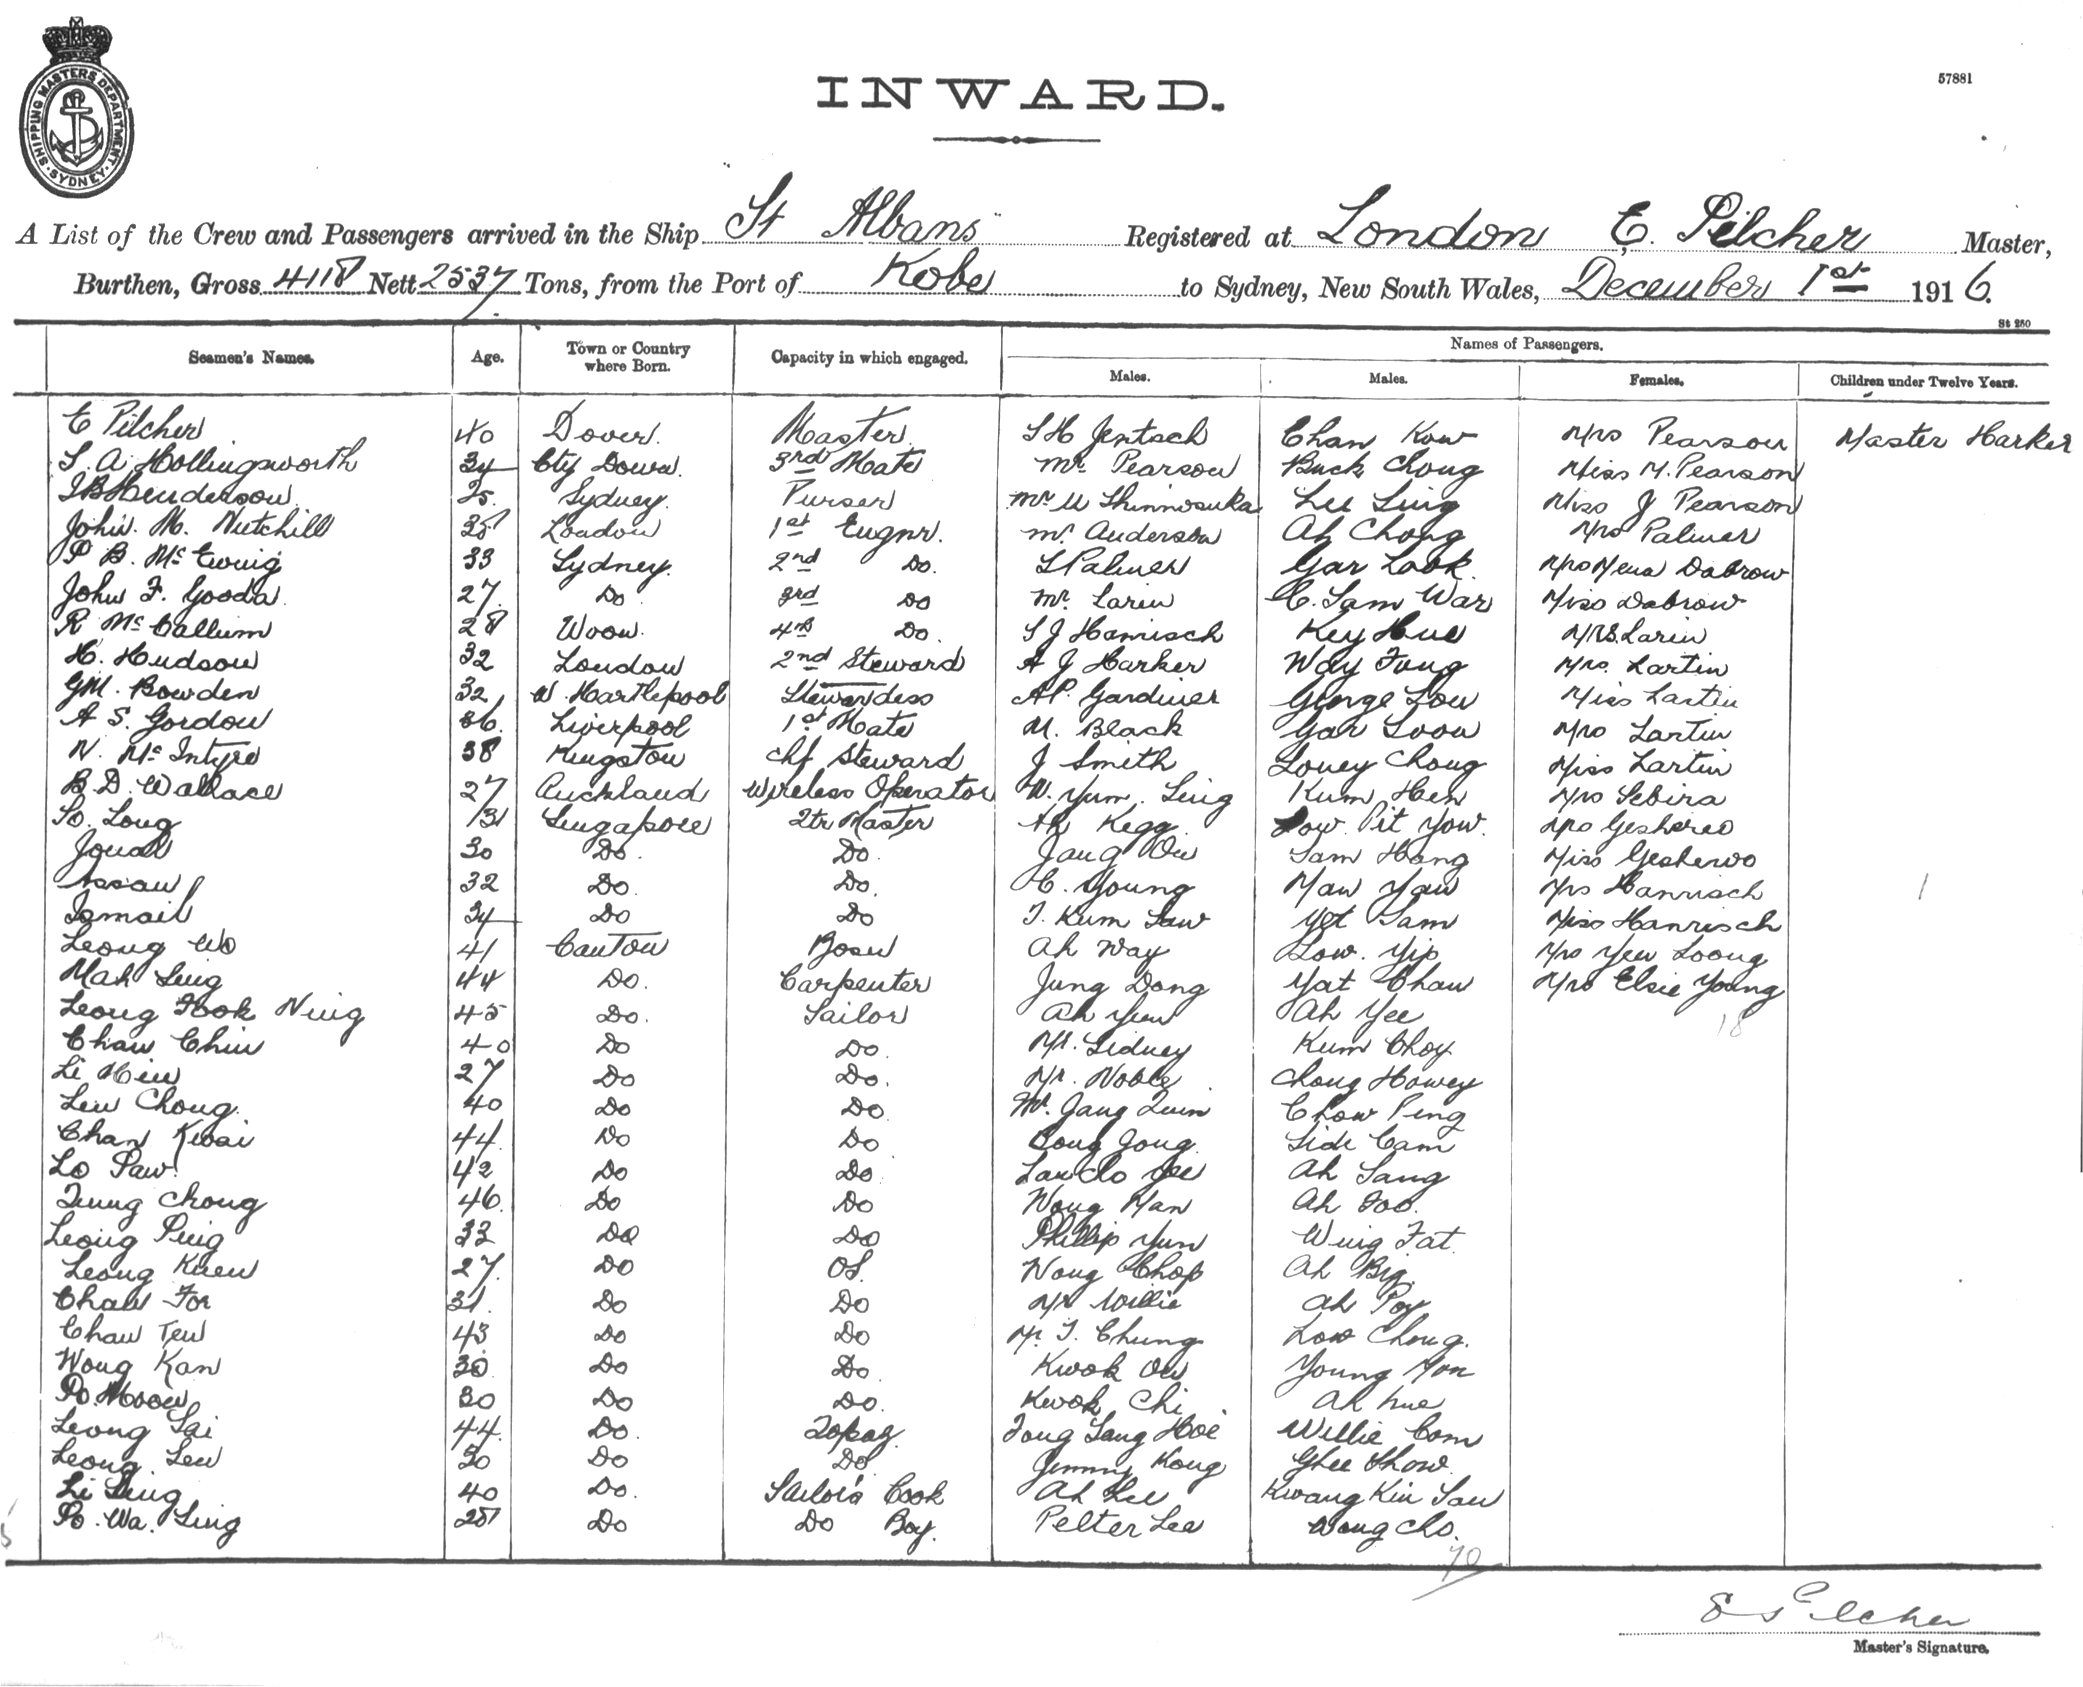 SHIPPING MASTERS DEPARTMENT · SYDNEY ·
INWARD.
57881
A List of the Crew and Passengers arrived in the Ship St Albans Registered at London E. Pilcher Master,
Burthen, Gross 4118 Nett 2537 Tons, from the Port of Kobe to Sydney, New South Wales, December 1st 1916.
St 250
Seamen's Names. Age. Town or Country where Born. Capacity in which engaged. Names of Passengers.
Males. Males. Females. Children under Twelve Years.
E Pilcher 40 Dover. Master. S H Jentsch Chan Kow Mrs Pearson Master Harker
S. A Hollingsworth 34 Cty Down. 3rd Mate Mr. Pearson Buck Chong Miss M. Pearson
Henderson 25. Sydney. Purser Mr U Shinnosuka Lee Ling Miss J Pearson
John. M. Nutchill London 1st Engnr. Mr. Anderson Ah Chong Mrs Palmer
P B. McEwing 33 Sydney. 2nd Do. S Palmer Gar Look. Mrs Mena Dabrow
John F. Gooda. 27. Do. 3rd Do Mr. Larin C. Sam War Miss Dabrow
R McCallum 28 Woon. 4th Do. S J Hamisch Key Hue MRS. Larin
H. Hudson 32 London 2nd Steward A J Harker Way Fong Mrs. Lartin
GM. Bowden 32 W. Hartlepool Stewardess A P. Gardiner George Low Miss Lartin
A S. Gordon 36. Liverpool 1st Mate M. Black Gar Soon Mrs Lartin
N. McIntyre 38 Kingston Chf Steward J Smith Loney Chong Miss Lartin
B. D. Wallace 27 Auckland Wireless Operator W. Yum. Ling Kum Hen Mrs Sebira
So. Long 31 Singapore 2tr Master Ah Kegg Low Pit Yow. Mrs
Jonah 30 Do. Do. Jang On Sam Hong Miss
Assan 32 Do. Do. C. Young Man Yan Mrs Hanrisch
Ismail 34 Do Do T. Kum Saw Yet Sam Miss Hanrisch
Leong Wo 41 Canton Bosn Ah Way Low. Yip Mrs Yew Loong
Mah Sing 44 Do. Carpenter Jung Dong Yat Chan Mrs Elsie Young
Leong Fook Ning 45 Do. Sailor Ah Yun Ah Yee 18
Chan Chin 40 Do Do. Mr. Sidney Kum Choy
Li Hin 27 Do Do. Mr. Noble Chong Howey
Lew Chong. 40 Do Do Mr. Jang Quin Chow Ping
Chan Kwai 44. Do Do Cong Jong Side Cam
Lo Paw. 42 Do Do. Yee Ah Sang
Tung Chong 46. Do Do Wong Man Ah Foo.
Leong Ping 33 Do Do Phillip Yun Wing Fat.
Leong Kuen 27. Do OS. Wong Chop Ah Big.
Chan For 31. Do Do Mr Willie Ah Poy
Chan Ten 43 Do Do Mr. T. Chung Low Chong.
Wong Kan 30 Do Do. Kwok On Young Hon
Po. Moon 30 Do Do. Kwok Chi Ah hue
Leong Sai 44. Do. Topaz. Fong Sang Hoe Willie Com
Leong Lew 30 Do Do Jimmy Kong Ghee Show.
Li Sing 40 Do. Sailor's Cook Ah Lee Kwang Kin San
Po. Wa. Sing 28 Do Do Boy. Pelter Lee Wong Cho.
70
E Pilcher
Master's Signature.